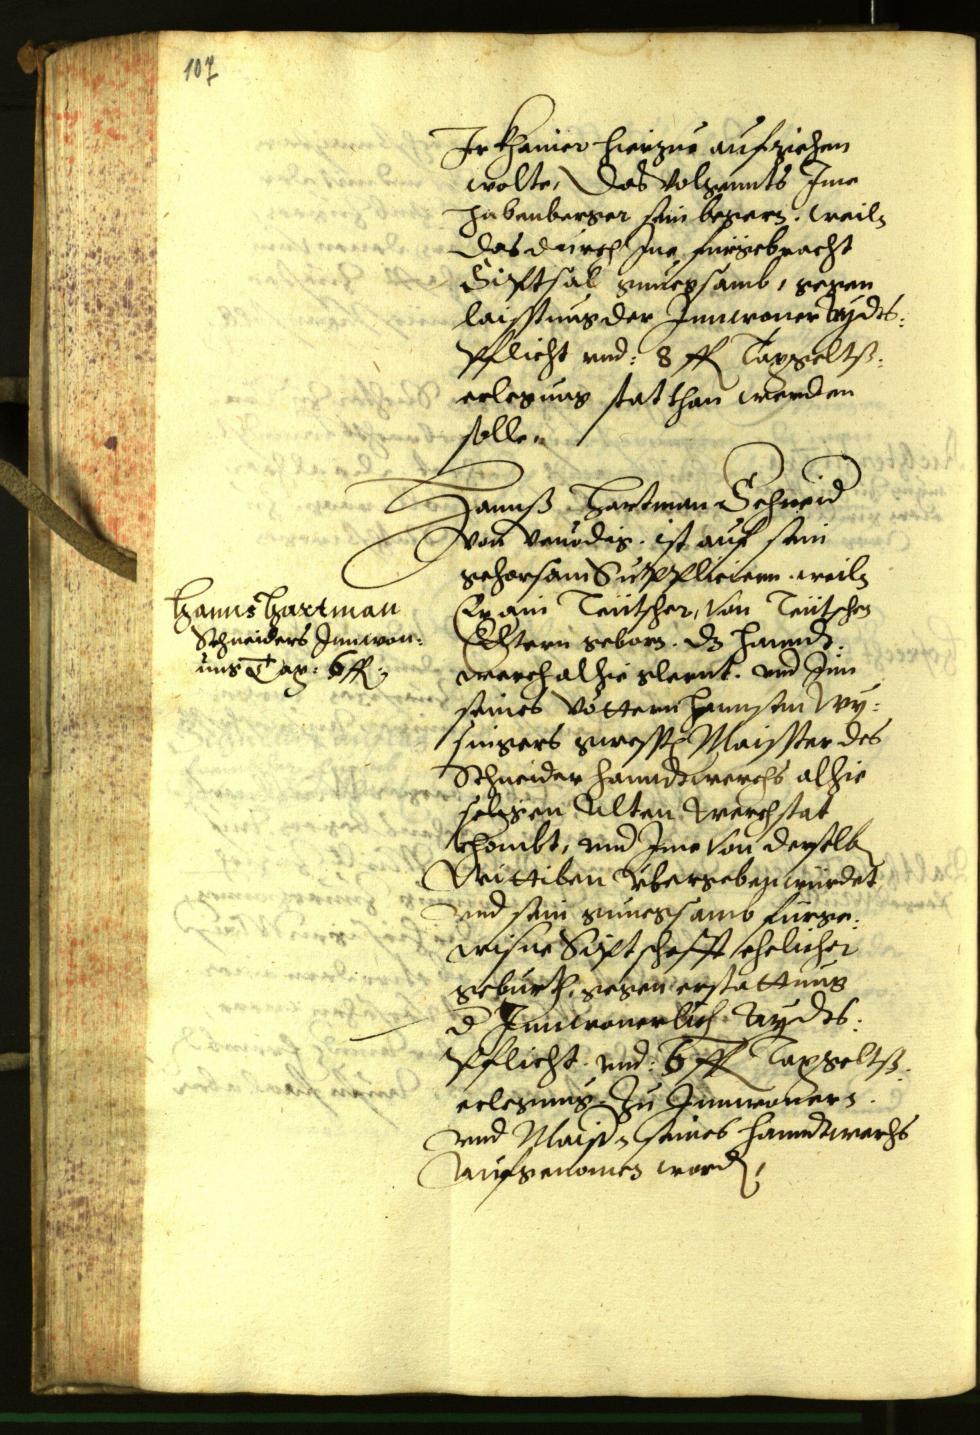 107
Ir khainer hierzue aufziehen
wolte, Das volgennts Ime
Habenberger sein begern. weiln
das durch Ine fürgebracht
Sipsal gnuegsamb, gegen
laisstung der Innwoner Aydts:
Pflicht vnd: 8 ff Taxgelts:
erlegung stat than werden
solle.
Hannß Hartman Schneid
von Venedig. ist auf sein
gehorsam Suppliciern. weiln
Er ain Teütscher, von Teütschen
Elltern geborn. dz hanndt:
werch alhie glernt. vnd Inn
seines vöttern
singers gwesten Maisster des
Schneider hanndtwerchs alhie
selgen Alten Werchstat
khombt, vnd Ime von derselb
Wittiben übergeben würdet
vnd sein gnuegsamb fürge:
wisne Siptschafft ehelicher
geburth, gegen erstattung
d Innwonerlich Aydts:
Pflicht. vnd: 6 ff Taxgelts:
erlegung. Zu Innwonern.
vnd Maistr seines hanndtwerchs
Aufgenomen word,
Hanns Hartman
Schneiders Innwon:
ung Tax: 6 ff.